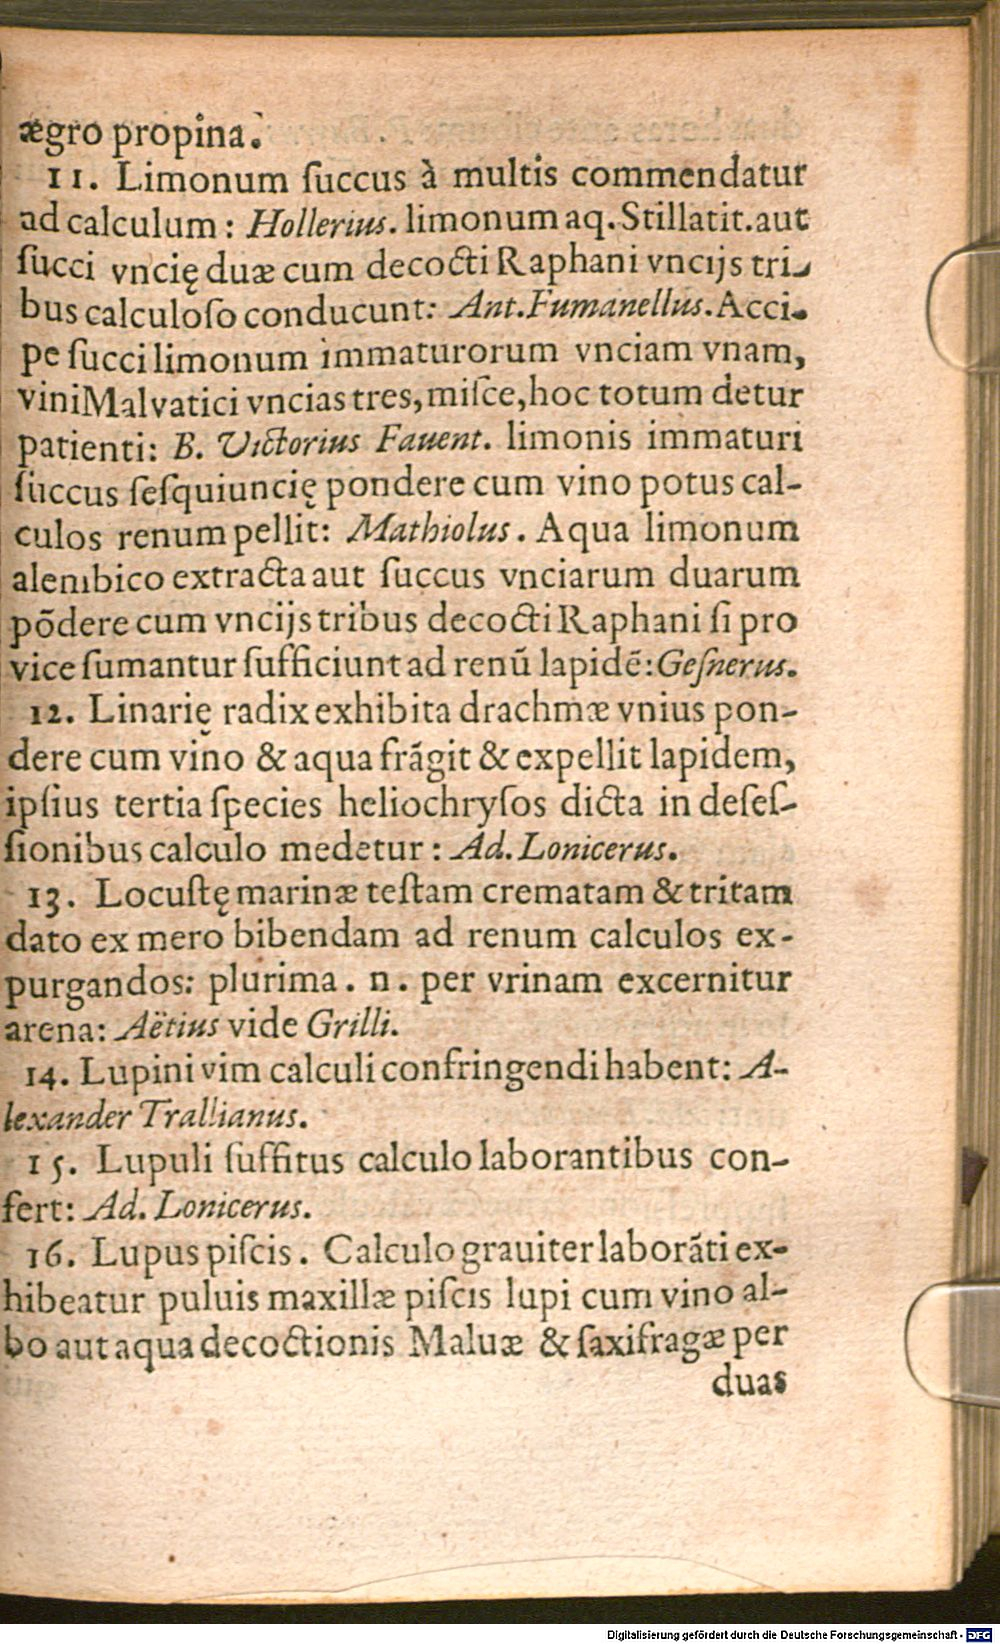 ægro propina.
11. Limonum ſuccus à multis commendatur
ad calculum: Hollerius. limonum aq. Stillatit. aut
ſucci vncię duæ cum decocti Raphani vncijs tri-
bus calculoſo conducunt: Ant. Fumanellus. Acci-
pe ſucci limonum immaturorum vnciam vnam,
vini Malvatici vncias tres, miſce, hoc totum detur
patienti: B. Victorius Fauent. limonis immaturi
ſuccus ſeſquiuncię pondere cum vino potus cal-
culos renum pellit: Mathiolus. Aqua limonum
alembico extracta aut ſuccus vnciarum duarum
põdere cum vncijs tribus decocti Raphani ſi pro
vice ſumantur ſufficiunt ad renũ lapidẽ: Geſnerus.
12. Linarię radix exhibita drachmæ vnius pon-
dere cum vino & aqua frãgit & expellit lapidem,
ipſius tertia ſpecies heliochryſos dicta in deſeſ-
ſionibus calculo medetur: Ad. Lonicerus.
13. Locuſtę marinæ teſtam crematam & tritam
dato ex mero bibendam ad renum calculos ex-
purgandos: plurima. n. per vrinam excernitur
arena: Aëtius vide Grilli.
14. Lupini vim calculi confringendi habent: A-
lexander Trallianus.
15. Lupuli ſuffitus calculo laborantibus con-
fert: Ad. Lonicerus.
16. Lupus piſcis. Calculo grauiter laborãti ex-
hibeatur puluis maxillæ piſcis lupi cum vino al-
bo aut aqua decoctionis Maluæ & ſaxifragæ per
duas
Digitalisierung gefördert durch die Deutsche Forschungsgemeinschaft - DFG